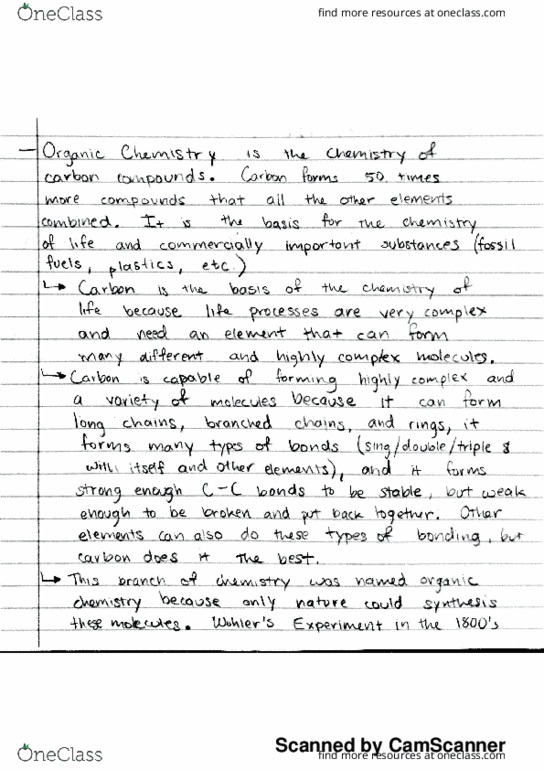 OneClass
find more resources at oneclass.com
– Organic Chemistry is the chemistry of
carbon compounds. Carbon forms 50 times
more compounds that all the other elements
combined. It is the basis for the chemistry
of life and commercially important substances (fossil
fuels, plastics, etc.)
↳ Carbon is the basis of the chemistry of
life because life processes are very complex
and need an element that can form
many different and highly complex molecules.
↳ Carbon is capable of forming highly complex and
a variety of molecules because it can form
long chains, branched chains, and rings, it
forms many types of bonds (sing/double/triple &
with itself and other elements), and it forms
strong enough C-C bonds to be stable, but weak
enough to be broken and put back together. Other
elements can also do these types of bonding, but
carbon does it the best.
↳ This branch of chemistry was named organic
chemistry because only nature could synthesis
these molecules. Wohler's Experiment in the 1800's
Scanned by CamScanner
OneClass
find more resources at oneclass.com